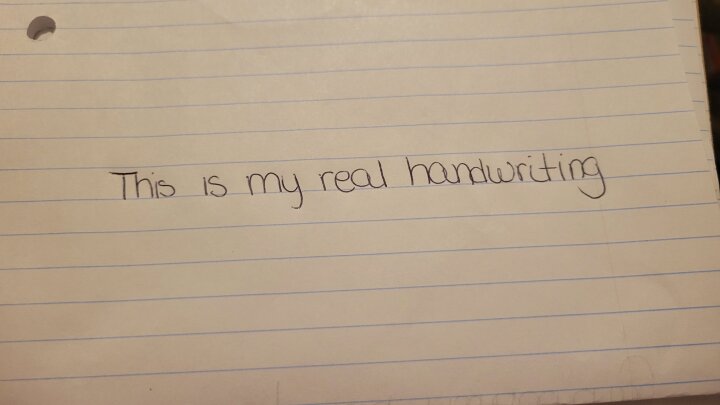 This is my real handwriting